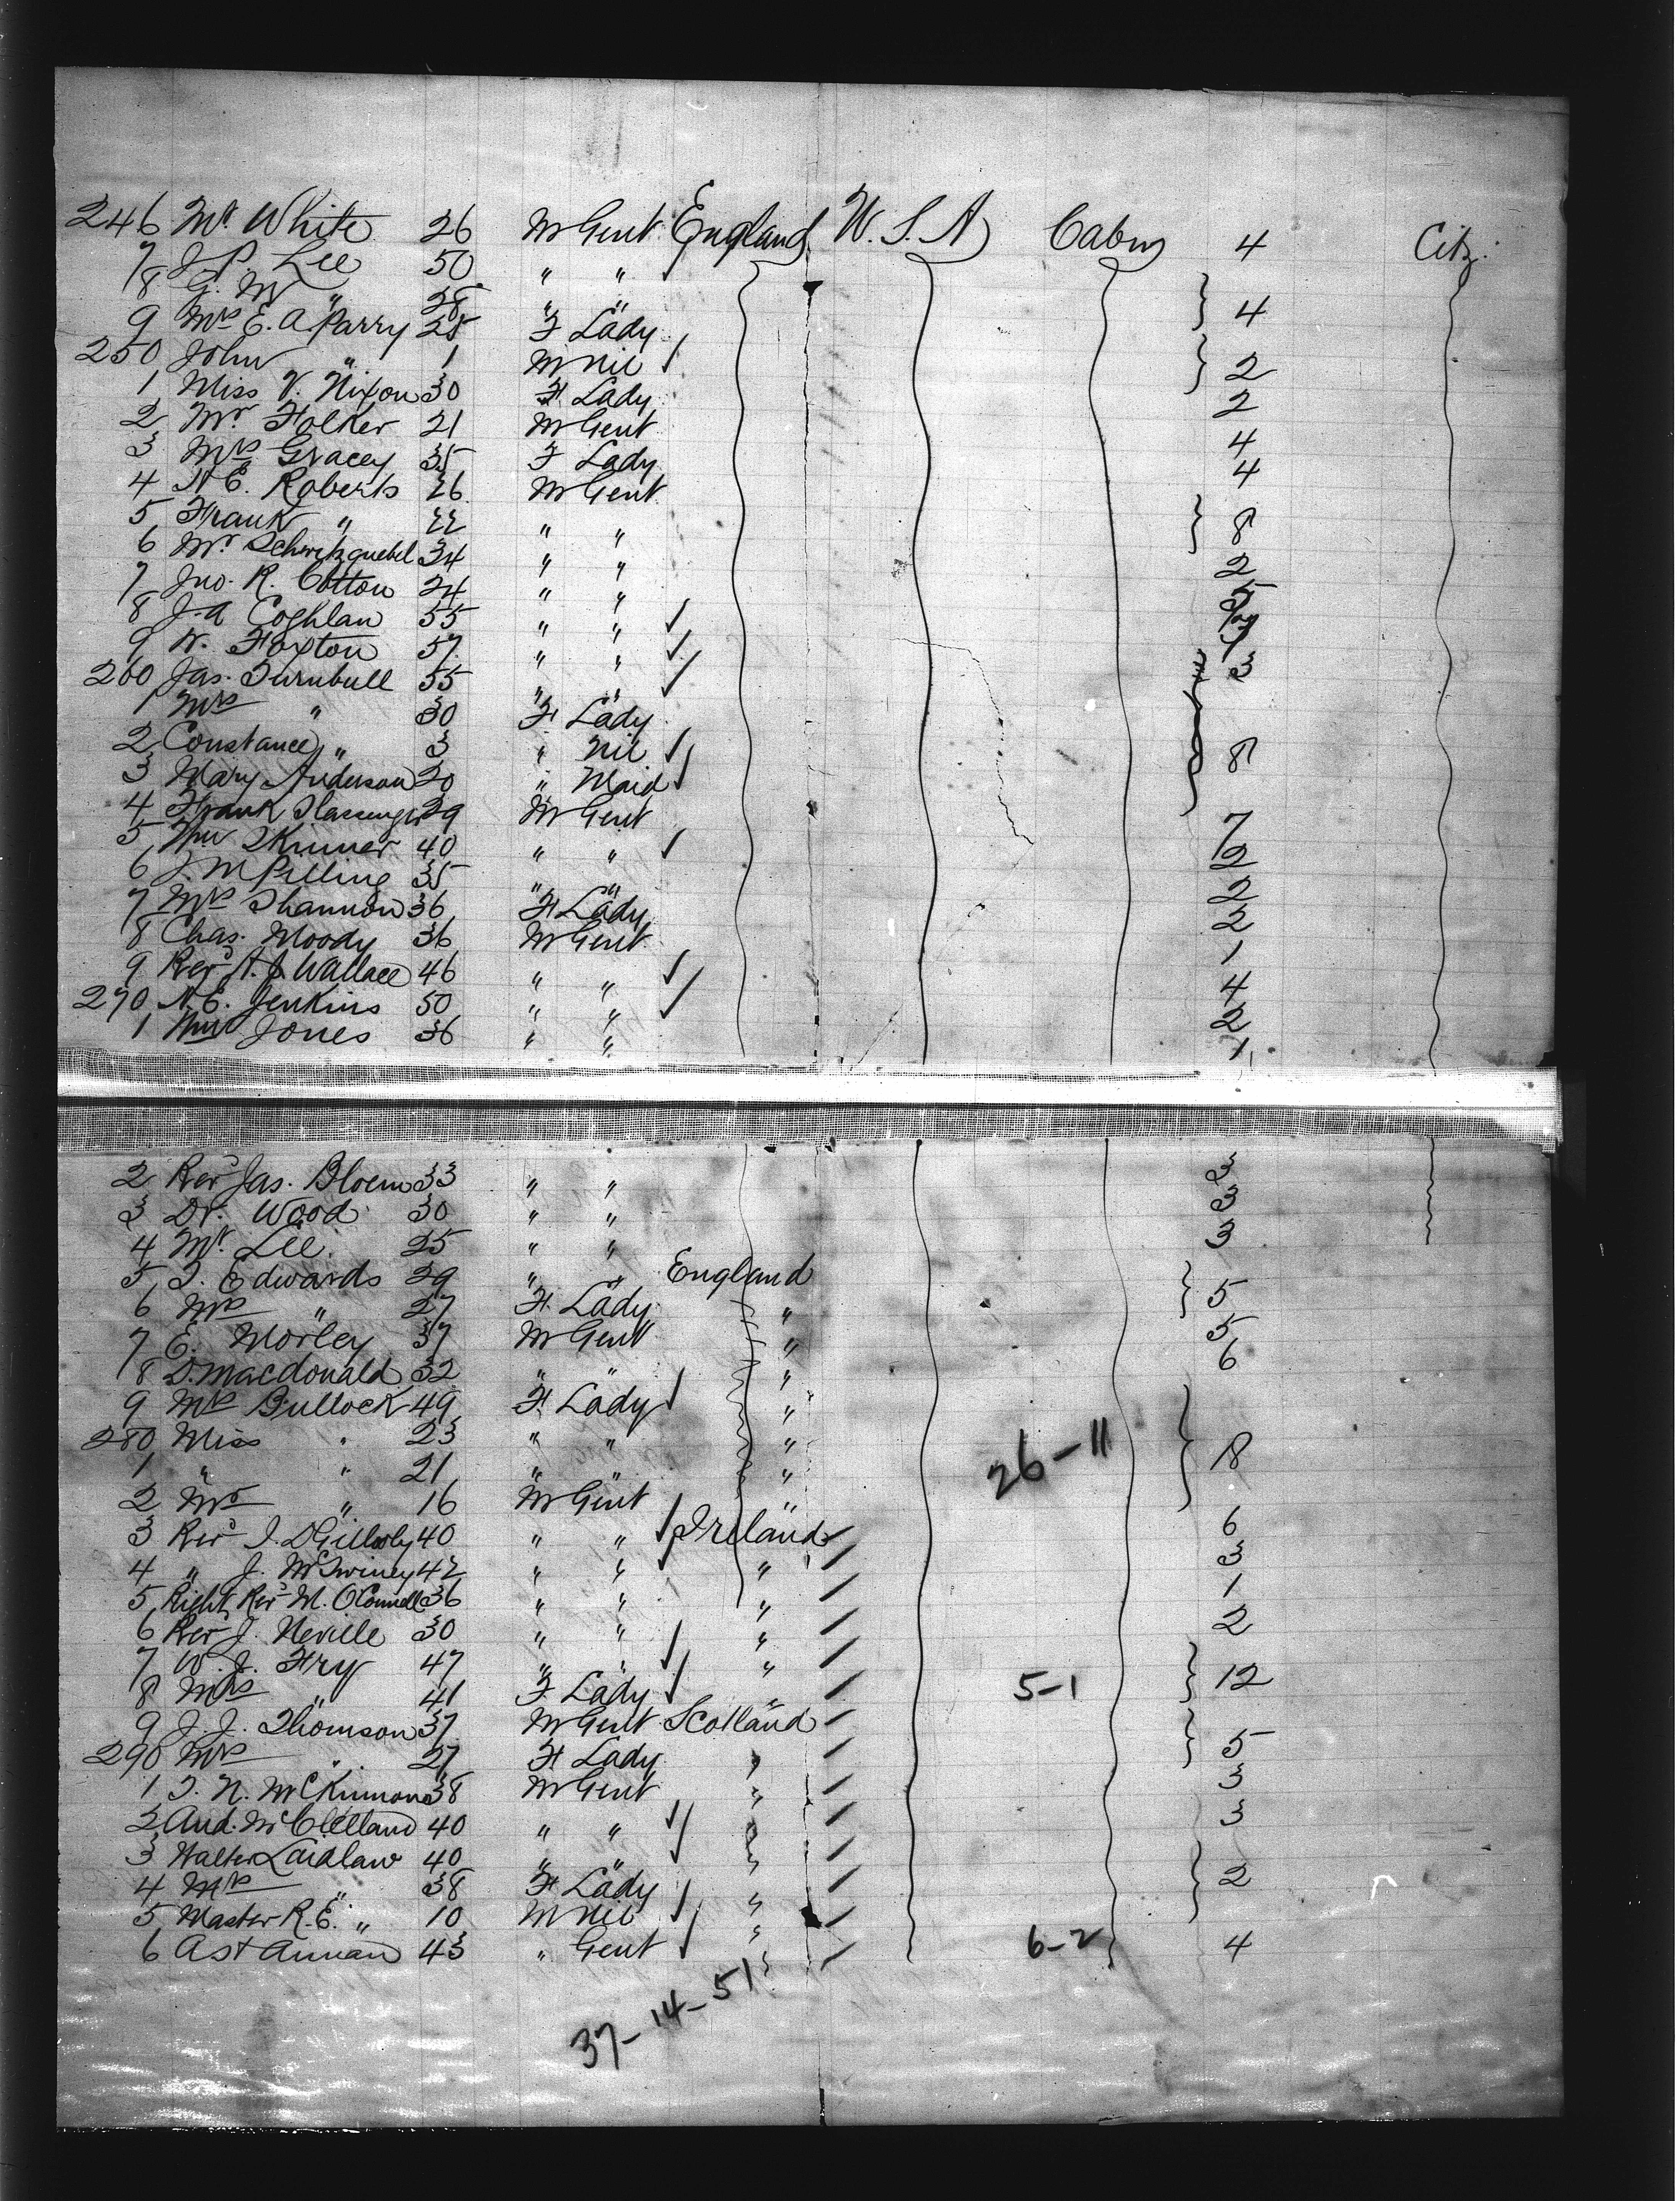 246 Mr. White 26 M Gent England U.S.A Cabin 4 Citz.
7 J. P. Lee 50 " "
8 G. M " 28 " " 4
9 Mrs E. A. Parry 25 F Lady
250 John " 1 M Nil 2
1 Miss V. Nixon 30 F Lady 2
2 Mr. Folker 21 M Gent 4
3 Mrs Gracey 35 F Lady 4
4 N E. Roberts 26 M Gent
5 Frank " 22 " " 8
6 Mr. 34 " " 2
7 Jno. R. Cotton 24 " "
8 J. A Coghlan 55 " "
9 W. Foxton 57 " "
260 Jas. Turnbull 55 " " 3
1 Mrs " 30 F Lady
2 Constance " 3 " Nil 8
3 Mary Anderson 20 " Maid
4 Frank 29 M Gent 7
5 Wm Skinner 40 " " 2
6 J. M Pilling 35 " " 2
7 Mrs Shannon 36 F Lady 2
8 Chas. Moody 36 M Gent 1
9 Revd A. J. Wallace 46 " " 4
270 N. E. Jenkins 50 " " 2
1 Wm Jones 36 " " 1
2 Revd Jas. Bloem 33 " " 3
3 Dr. Wood 30 " " 3
4 Mr. Lee 25 " " 3
5 T. Edwards 29 " " England
6 Mrs " 27 F Lady " 5
7 E. Morley 37 M Gent " 5
8 D. Macdonald 32 " " " 6
9 Mrs Bullock 49 F Lady "
280 Miss " 23 " " " 26-11 18
1 " " 21 " " "
2 Mr " 16 M Gent "
3 Revd 40 " " Ireland 6
4 " J. McSwiney 42 " " " 3
5 Right Revd M. O'Connell 36 " " " 1
6 Revd J. Neville 30 " " " 2
7 W. J. Fry 47 " " "
8 Mrs " 41 F Lady " 5-1 12
9 J. J. Thomson 37 M Gent Scotland
290 Mrs " 27 F Lady " 5
1 T. N. McKinnon 38 M Gent " 3
2 And. McClelland 40 " " " 3
3 Walter Laidlaw 40 " " "
4 Mrs " 38 F Lady " 2
5 Master R. E. " 10 M Nil "
6 Annan 43 " Gent " 6-2 4
37-14-51